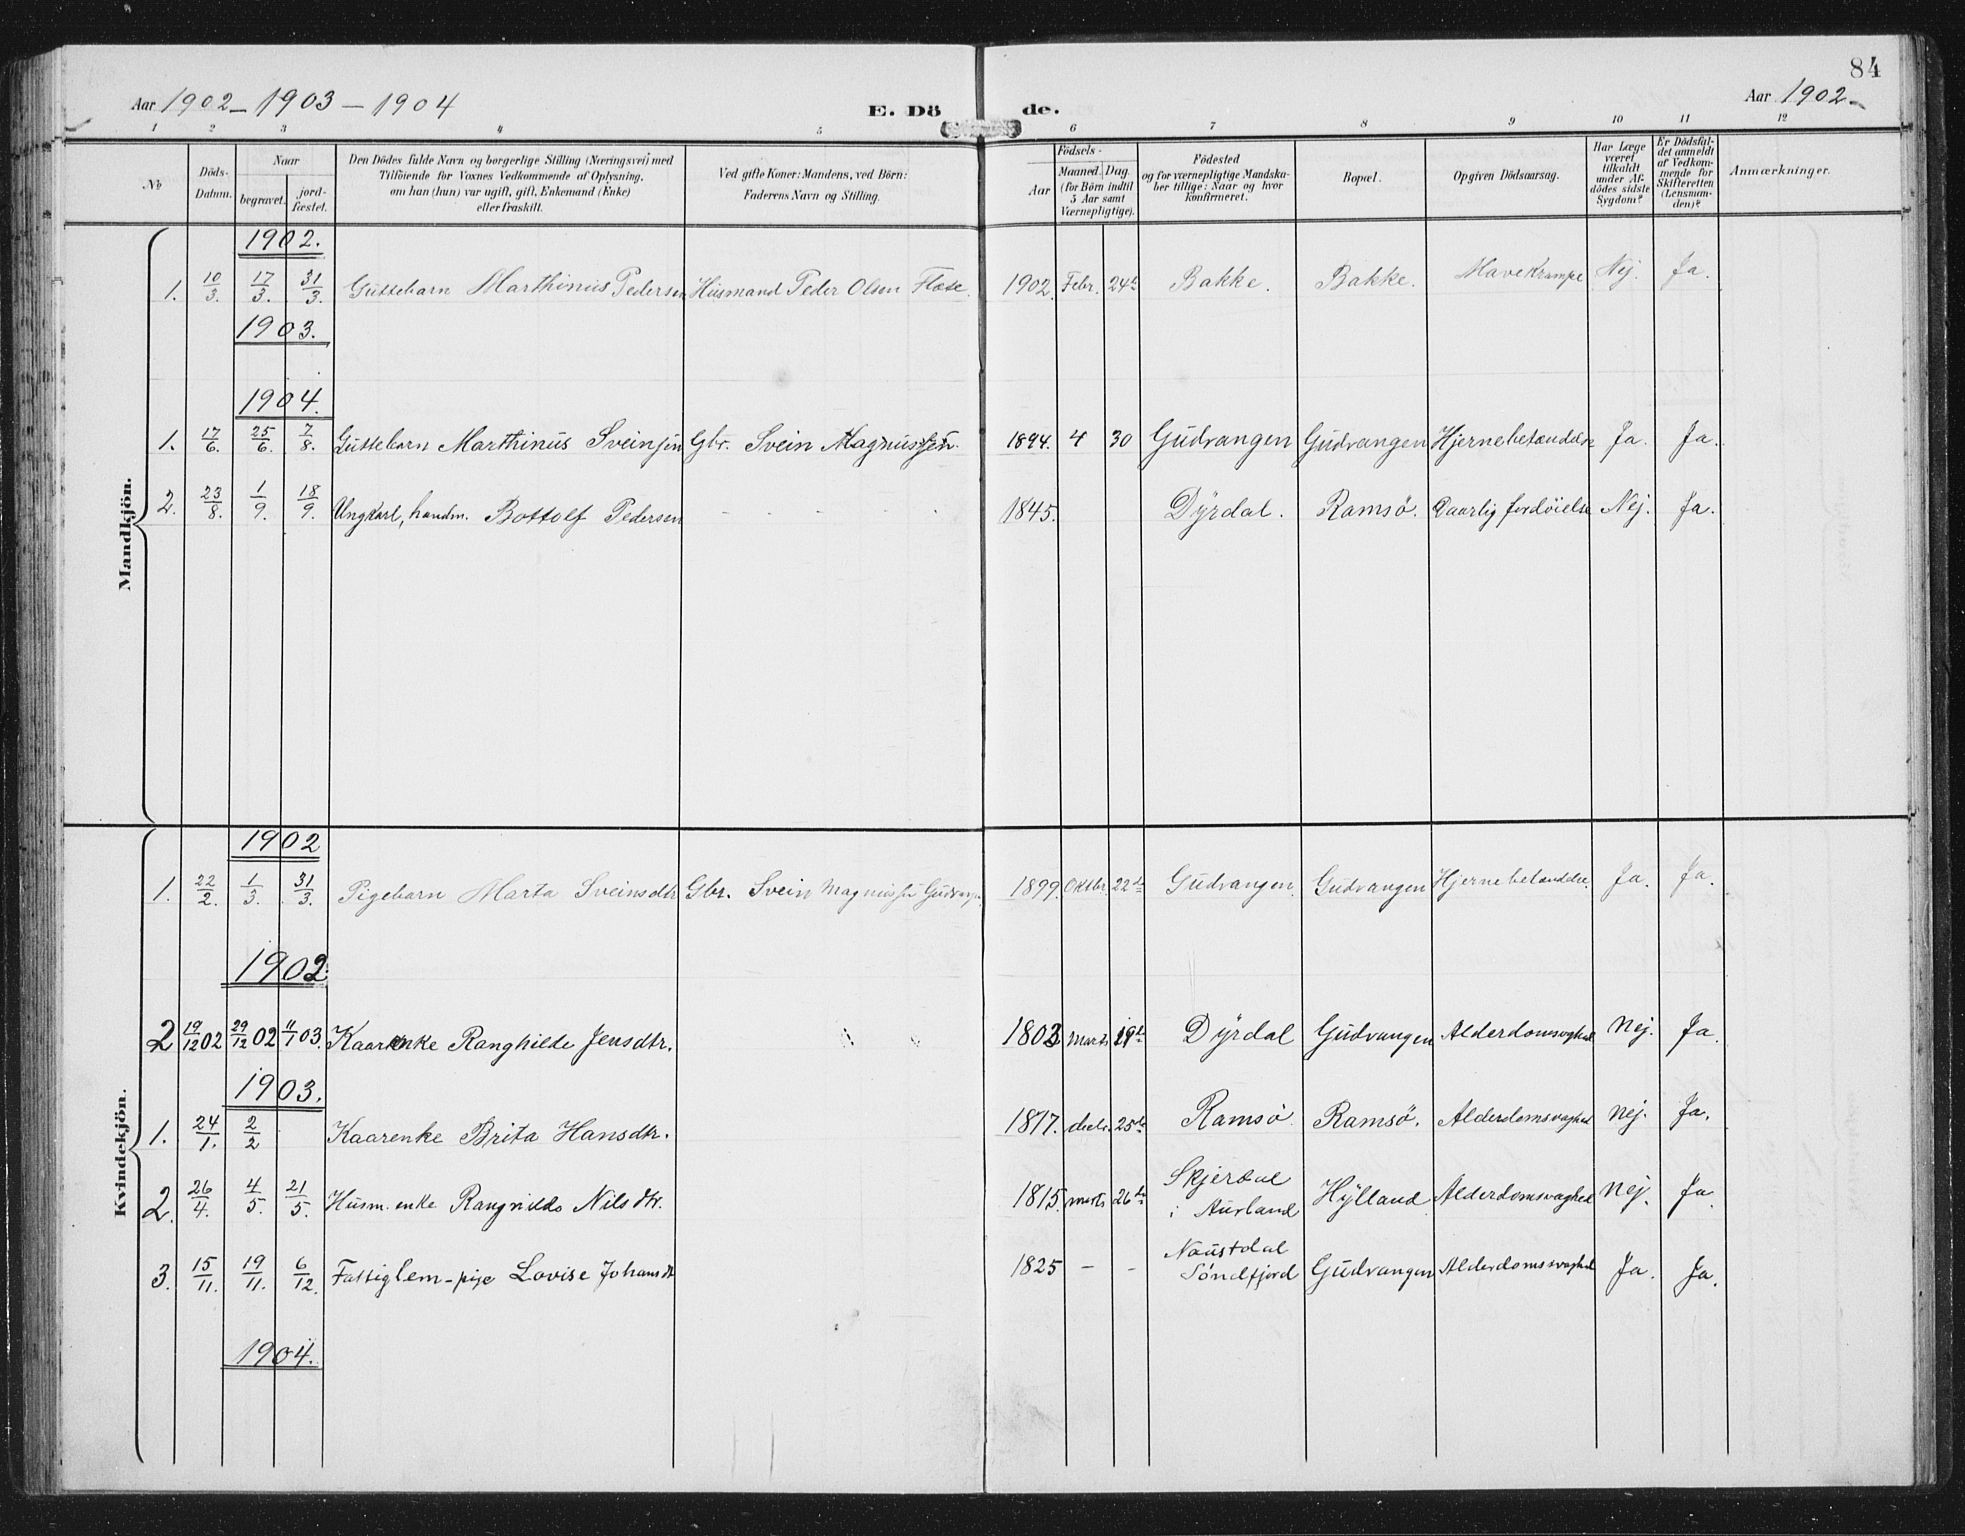 84
Aar 1902 - 1903 - 1904 E. Dö de. Aar 1902.
1 2 3 4 5 6 7 8 9 10 11 12
No
Döds-Datum.
Naar
begravet.
jord-fæstet.
Den Dödes fulde Navn og borgerlige Stilling (Næringsvei) med
Tilföiende for Voxnes Vedkommende af Oplysning,
om han (hun) var ugift, gift, Enkemand (Enke)
eller fraskilt.
Ved gifte Koner: Mandens, ved Börn:
Faderens Navn og Stilling.
Födsels-
Aar
Maaned. Dag.
(for Börn indtil
5 Aar samt
Værnepligtige).
Födested
og for værnepligtige Mandska-
ber tillige: Naar og hvor
konfirmeret.
Bopæl.
Opgiven Dödsaarsag.
Har Læge
været
tilkaldt
under Af-
dödes sidste
Sygdom?
Er Dödsfal-
det anmeldt
af Vedkom-
mende for
Skifteretten
(Lensman-
den)?
Anmærkninger.
Mandkjön.
1902.
1. 10/3. 17/3. 31/3. Guttebarn Marthinus Pedersen Husmand Peder Olsen 1902. Febr. 24de Bakke. Bakke. Mavekrampe Nej. Ja.
1903.
1904.
1. 17/6. 25/6. 7/8. Guttebarn Marthinus Sveinsen Gbr. Svein Magnussen. 1894. 4 30 Gudvangen Gudvangen Hjernebetændelse Ja. Ja.
2. 23/8. 1/9. 18/9. Ungkarl, handm. Bottolf Pedersen - - - - 1845. Dyrdal. Ramsö. Daarlig fordöielse Nej. Ja.
Kvindekjön.
1902
1. 22/2. 1/3. 31/3. Pigebarn Marta Sveinsdtr Gbr. Svein Magnussen Gudvangen 1899. Oktbr. 22de Gudvangen. Gudvangen Hjernebetændelse. Ja. Ja.
1902.
2 19/12 02 29/12 02 11/1 03. Kaarenke Ranghilde Jensdtr. 1802 Marts 19de Dyrdal Gudvangen Alderdomsvaghed Nej. Ja.
1903.
1. 24/1. 2/2 Kaarenke Brita Hansdtr. 1817. decbr. 25de Ramsö. Ramsö. Alderdomsvaghed Nej. Ja.
2. 26/4. 4/5. 21/5. Husm. enke Nilsdtr. 1815. marts 26de Skjerdal i Aurland Hylland Alderdomsvaghed Nej. Ja.
3. 15/11. 19/11. 6/12. Fattiglem-pige Lovise Johansdt 1825 - - Naustdal Söndfjord Gudvangen Alderdomssvaghed Ja. Ja.
1904.